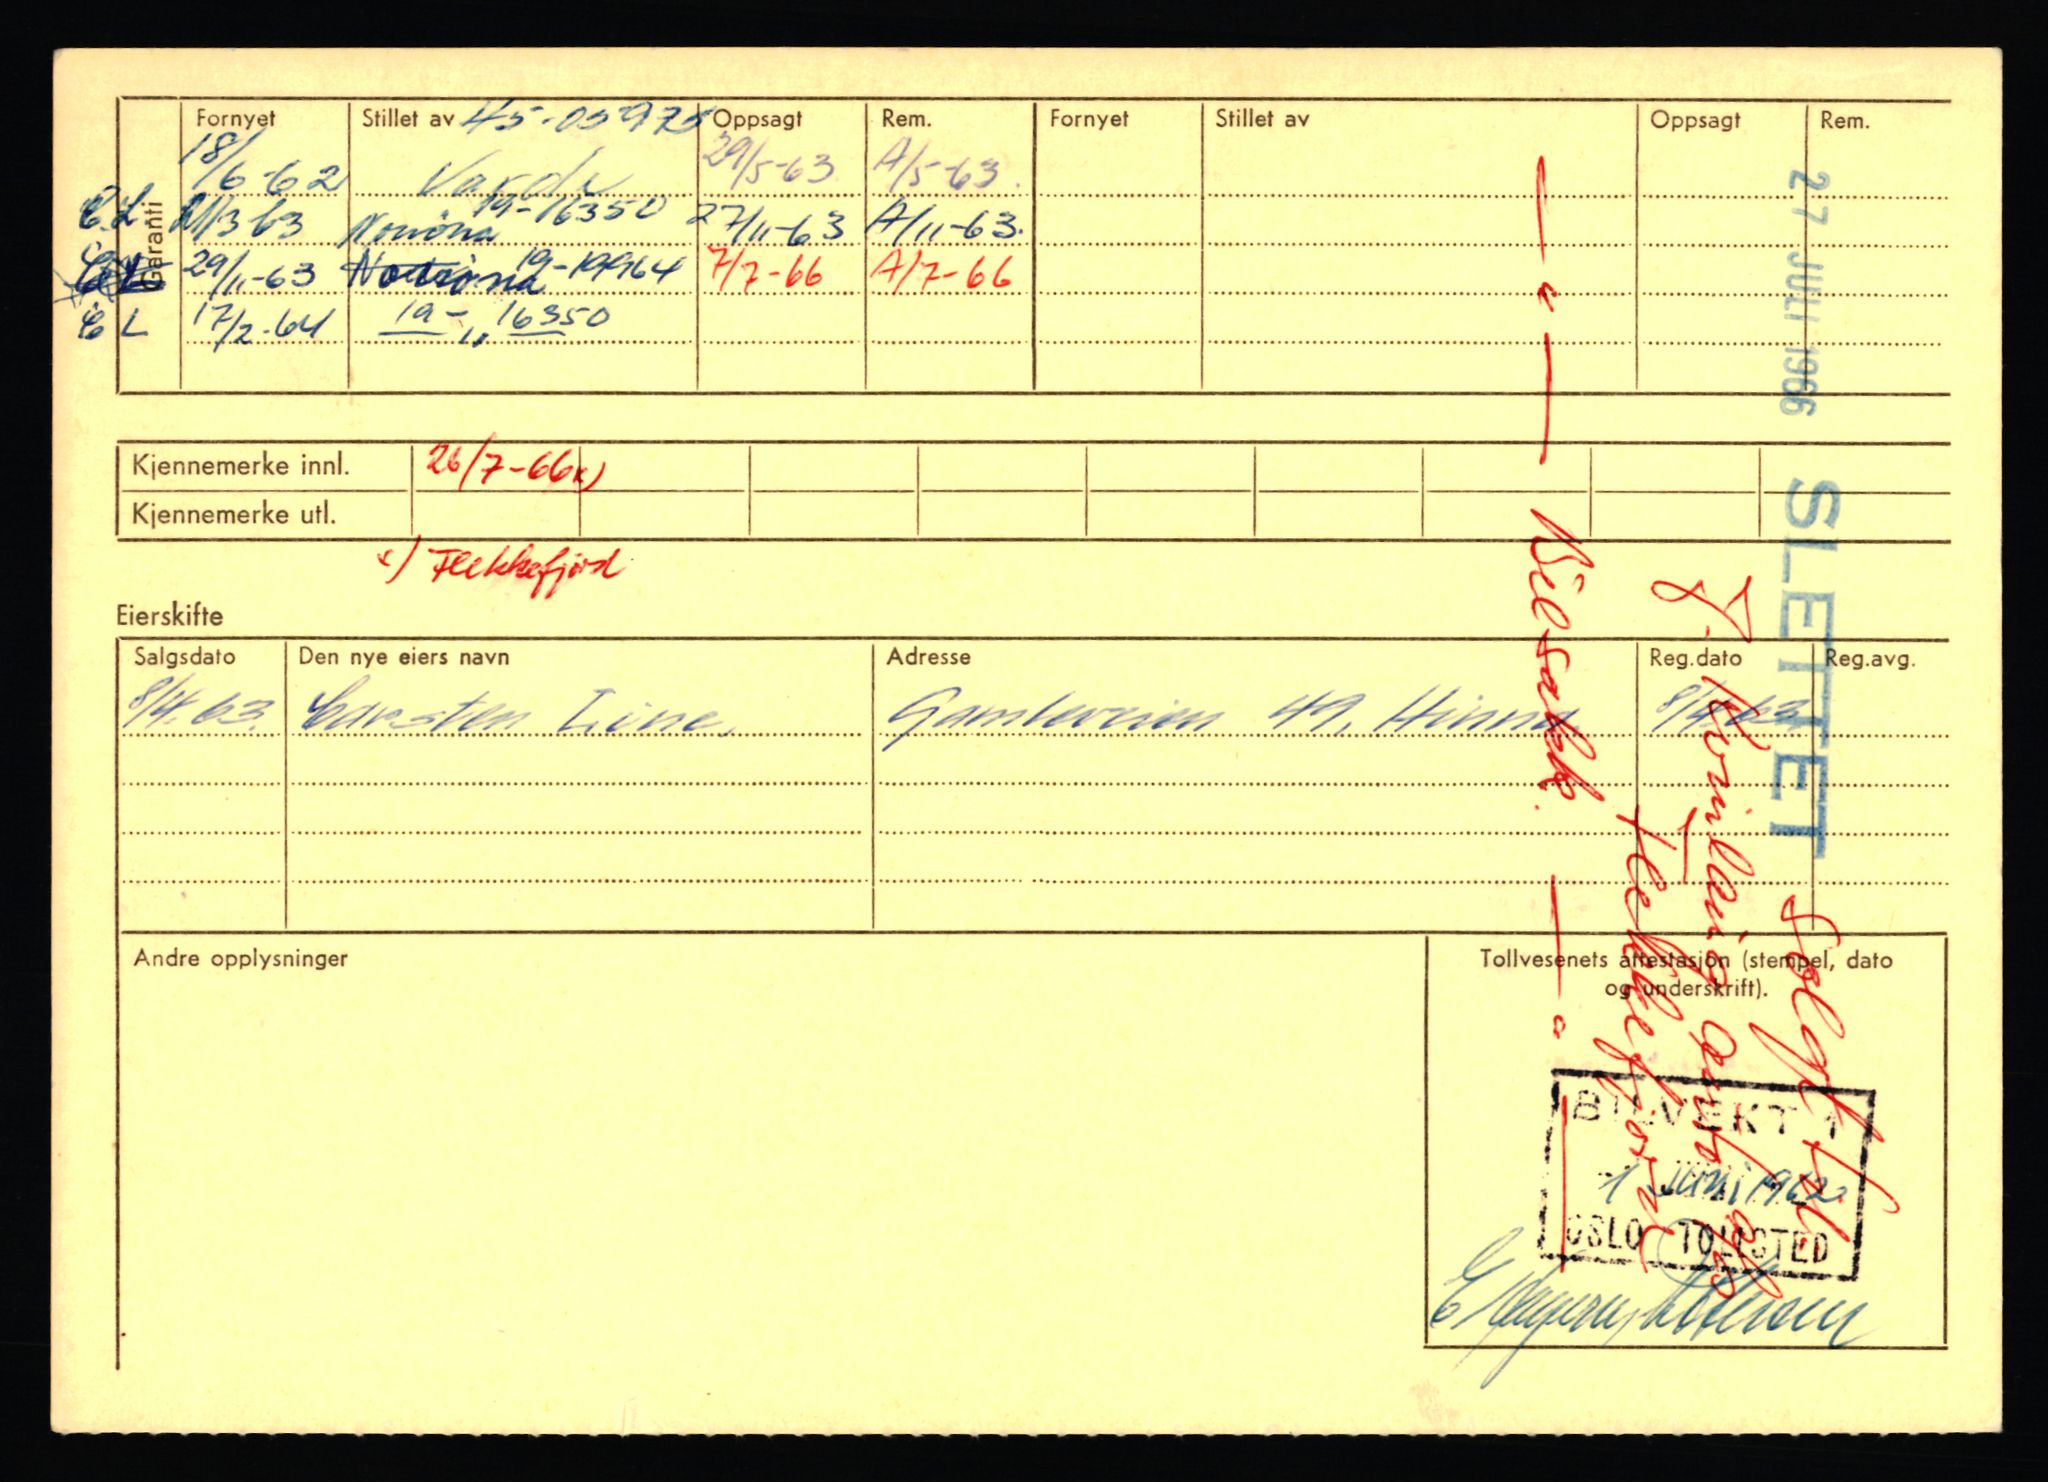 Fornyet Stillet av 45-05975 Oppsagt Rem. Fornyet Stillet av Oppsagt Rem.
Garanti
18/6-62 Varde 29/5-63 A/5-63.
C.L. 3 63 Norröna 19-16350 27/11-63 A/11-63.
29/11-63 19-19964 7/7-66 A/7-66
C L 17/2-64 19- „ 16350
Kjennemerke innl. 26/7-66 x)
Kjennemerke utl.
x) Flekkefjord
Eierskifte
Salgsdato Den nye eiers navn Adresse Reg.dato Reg.avg.
8/4.63. Carsten Line. Gamleveien 49, Hinna 8/4.63
Andre opplysninger
Tollvesenets attestasjon (stempel, dato
og underskrift).
BILVEKT 1
1 JUNI 1962
OSLO TOLLSTED
27 JULI 1966
SLETTET
Solgt til
Flekkefjord
— „ — Bilsakk. — „ —